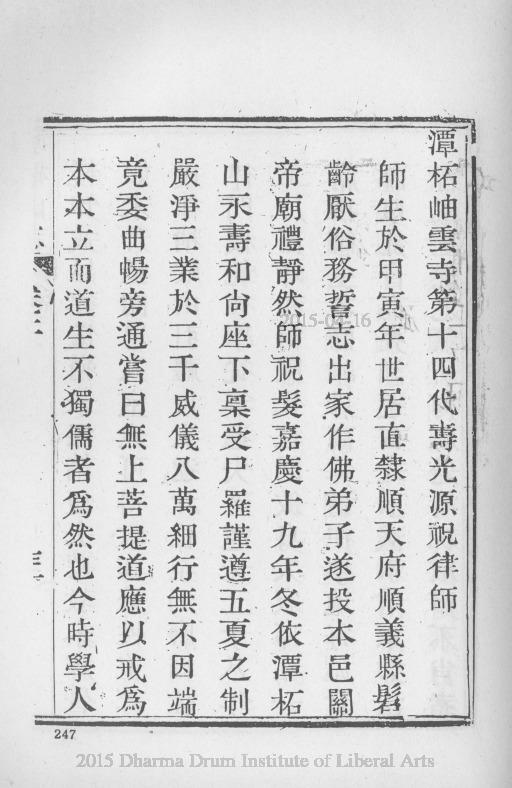 潭柘岫雲寺第十四代壽光源祝律師
師生於甲寅年世居直隸順天府順義縣髫
齡厭俗務誓志出家作佛弟子遂投本邑關
帝廟禮靜然師祝髮嘉慶十九年冬依潭柘
山永壽和尙座下稟受尸羅謹遵五夏之制
嚴淨三業於三千威儀八萬細行無不因端
竟委曲暢旁通嘗曰無上菩提道應以戒爲
本本立而道生不獨儒者爲然也今時學人
247
2015-04-16
2015 Dharma Drum Institute of Liberal Arts